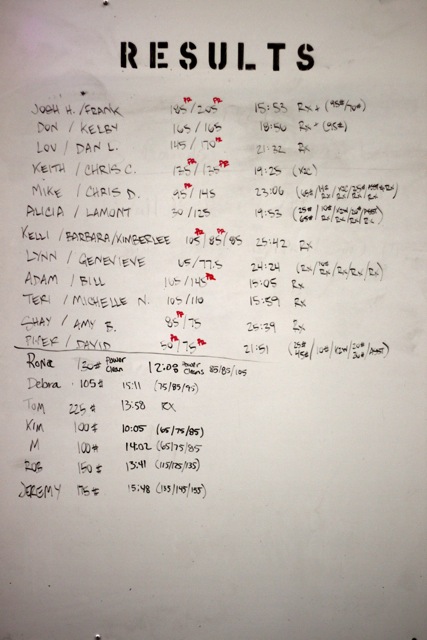 RESULTS
JOSH H. / FRANK 185 PR / 205 PR 15:53 RX + (95#/70#)
DON / KELBY 165 / 165 18:56 RX - (95#)
LOU / DAN L. 145 / 170 PR 21:22 RX
KEITH / CHRIS C. 135 PR / 135 PR 19:25 (V2C)
MIKE / CHRIS D. 95 PR / 145 23:06
ALICIA / LAMONT 30 / 125 19:53
KELLI / BARBARA / KIMBERLEE 105 PR / 85 PR / 85 25:42 RX
LYNN / GENEVIEVE 65 / 77.5 24:24
ADAM / BILL 105 / 145 PR 15:05 RX
TERI / MICHELLE N. 105 / 110 15:59 RX
SHAY / AMY B. 85 PR / 75 25:39 RX
PIPER / DAVID 50 PR / 75 PR 21:51
Rona 130# Power Clean 12:08 Power Cleans 85/85/105
Debra 105# 15:11 (75/85/95)
TOM 225# 13:58 RX
KIM 100# 10:05 (65/75/85)
M 100# 14:02 (65/75/85
ROB 150# 13:41 (115/125/135)
JEREMY 175# 15:48 (135/145/155)